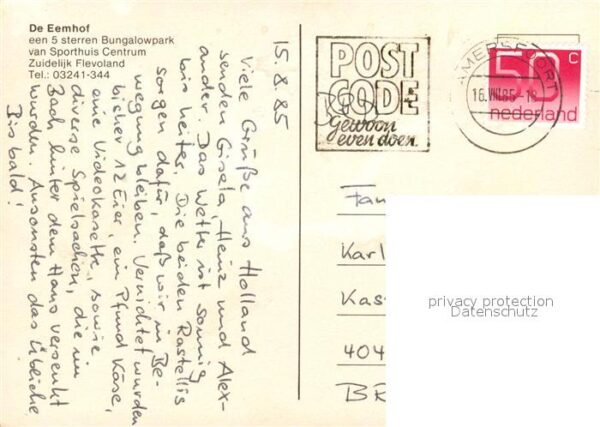 De Eemhof
een 5 sterren Bungalowpark
van Sporthuis Centrum
Zuidelijk Flevoland
Tel.: 03241-344
15.8.85
Viele Grüße aus Holland
senden Gisela, Heinz und Alex-
ander. Das Wetter ist sonnig
bis heiter. Die beiden Rastellis
sorgen dafür, daß wir in Be-
wegung bleiben. Vernichtet wurden
bisher 12 Eier, ein Pfund Käse,
eine Videokassette, sowie
diverse Spielsachen, die im
Bach hinter dem Haus versenkt
wurden. Ansonsten das Übliche
Bis bald!
POST
CODE
Gewoon
even doen.
AMERSFOORT
16.VIII.85-18
50 c
nederland
Fam
Karl
Kas
404
BR
privacy protection
Datenschutz